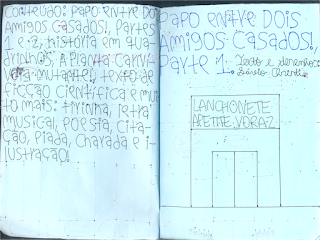 Conteúdo: Papo entre dois
amigos casados!, partes
1 e 2, história em qua-
drinhos, A planta carní-
vora mutante!, texto de
ficção científica e mui-
to mais: tirinha, letra
musical, poesia, cita-
ção, piada, charada e i-
lustração.
Papo entre dois
amigos casados!,
parte 1.
Texto e desenhos:
LANCHONETE
APETITE VORAZ